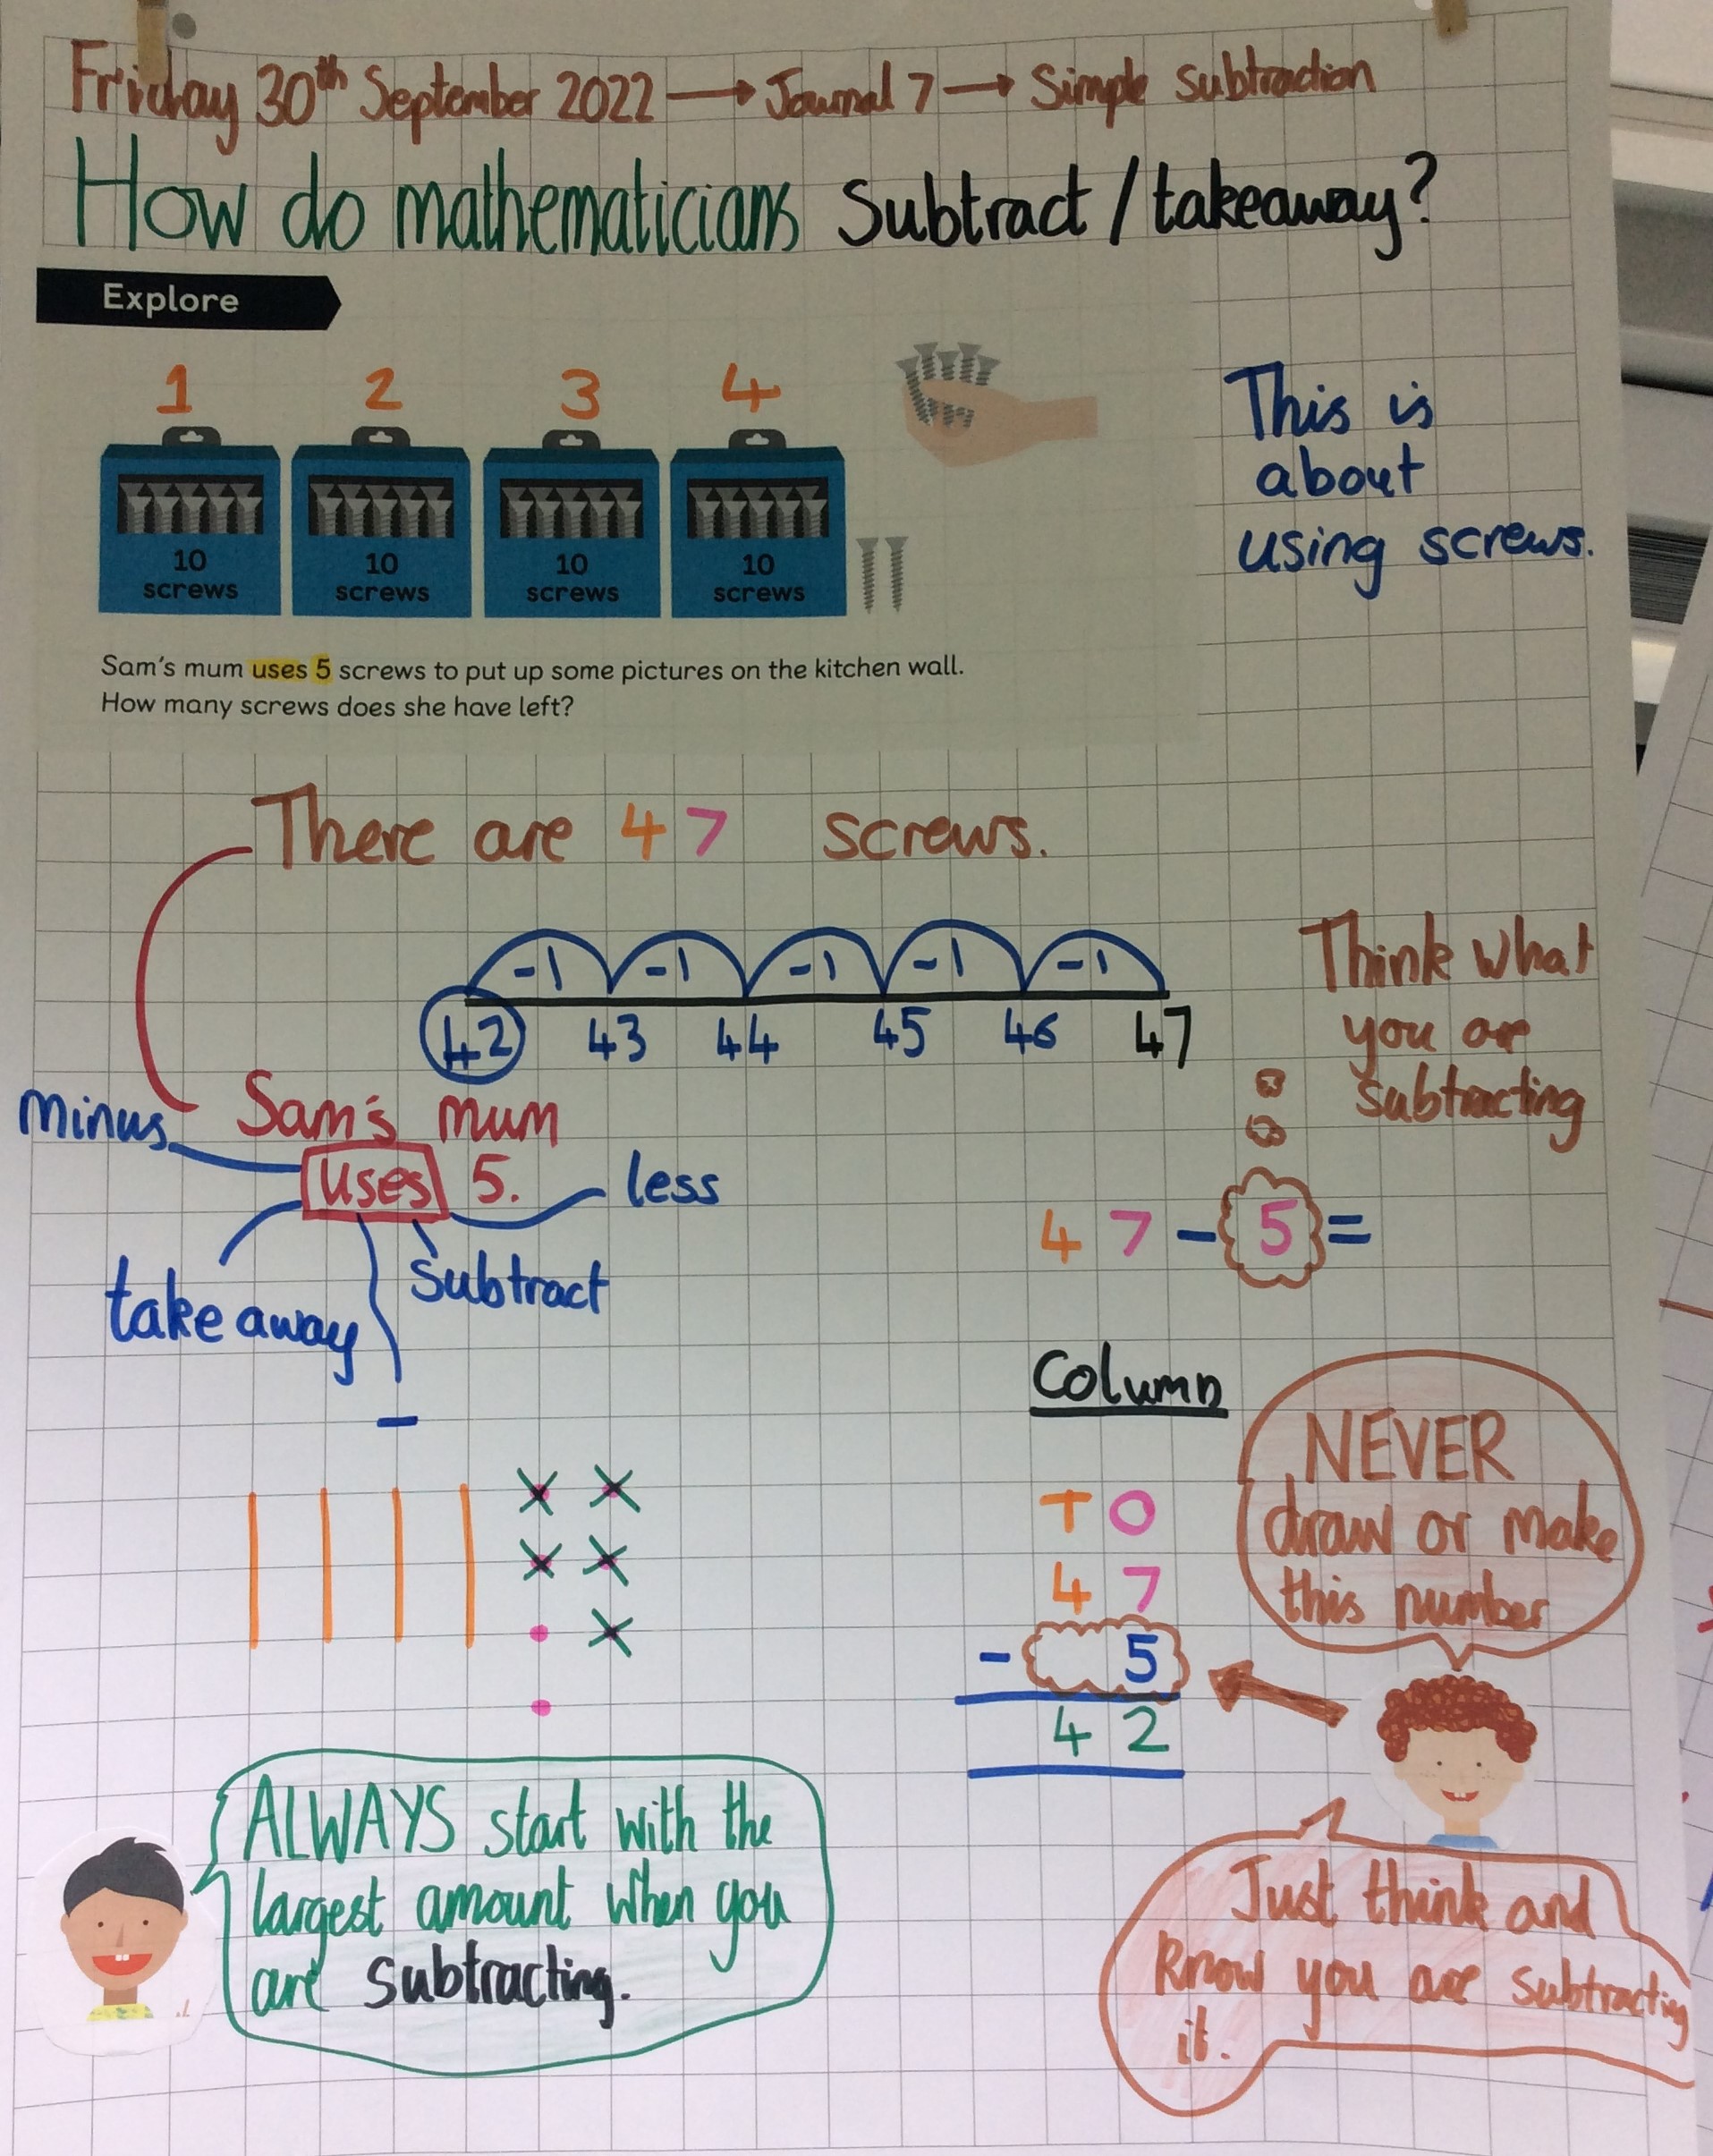 Friday 30th September 2022 → Journal 7 → Simple Subtraction
How do mathematicians Subtract / takeaway?
Explore
1 2 3 4
10 screws
10 screws
10 screws
10 screws
This is
about
using screws.
Sam's mum uses 5 screws to put up some pictures on the kitchen wall.
How many screws does she have left?
There are 47 screws.
-1 -1 -1 -1 -1
42 43 44 45 46 47
Think what
you are
subtracting
minus
Sam's mum
uses 5.
less
take away
subtract
-
47 - 5 =
Column
T O
4 7
- 5
4 2
NEVER
draw or make
this number
ALWAYS start with the
largest amount when you
are subtracting.
Just think and
Know you are subtracting
it.